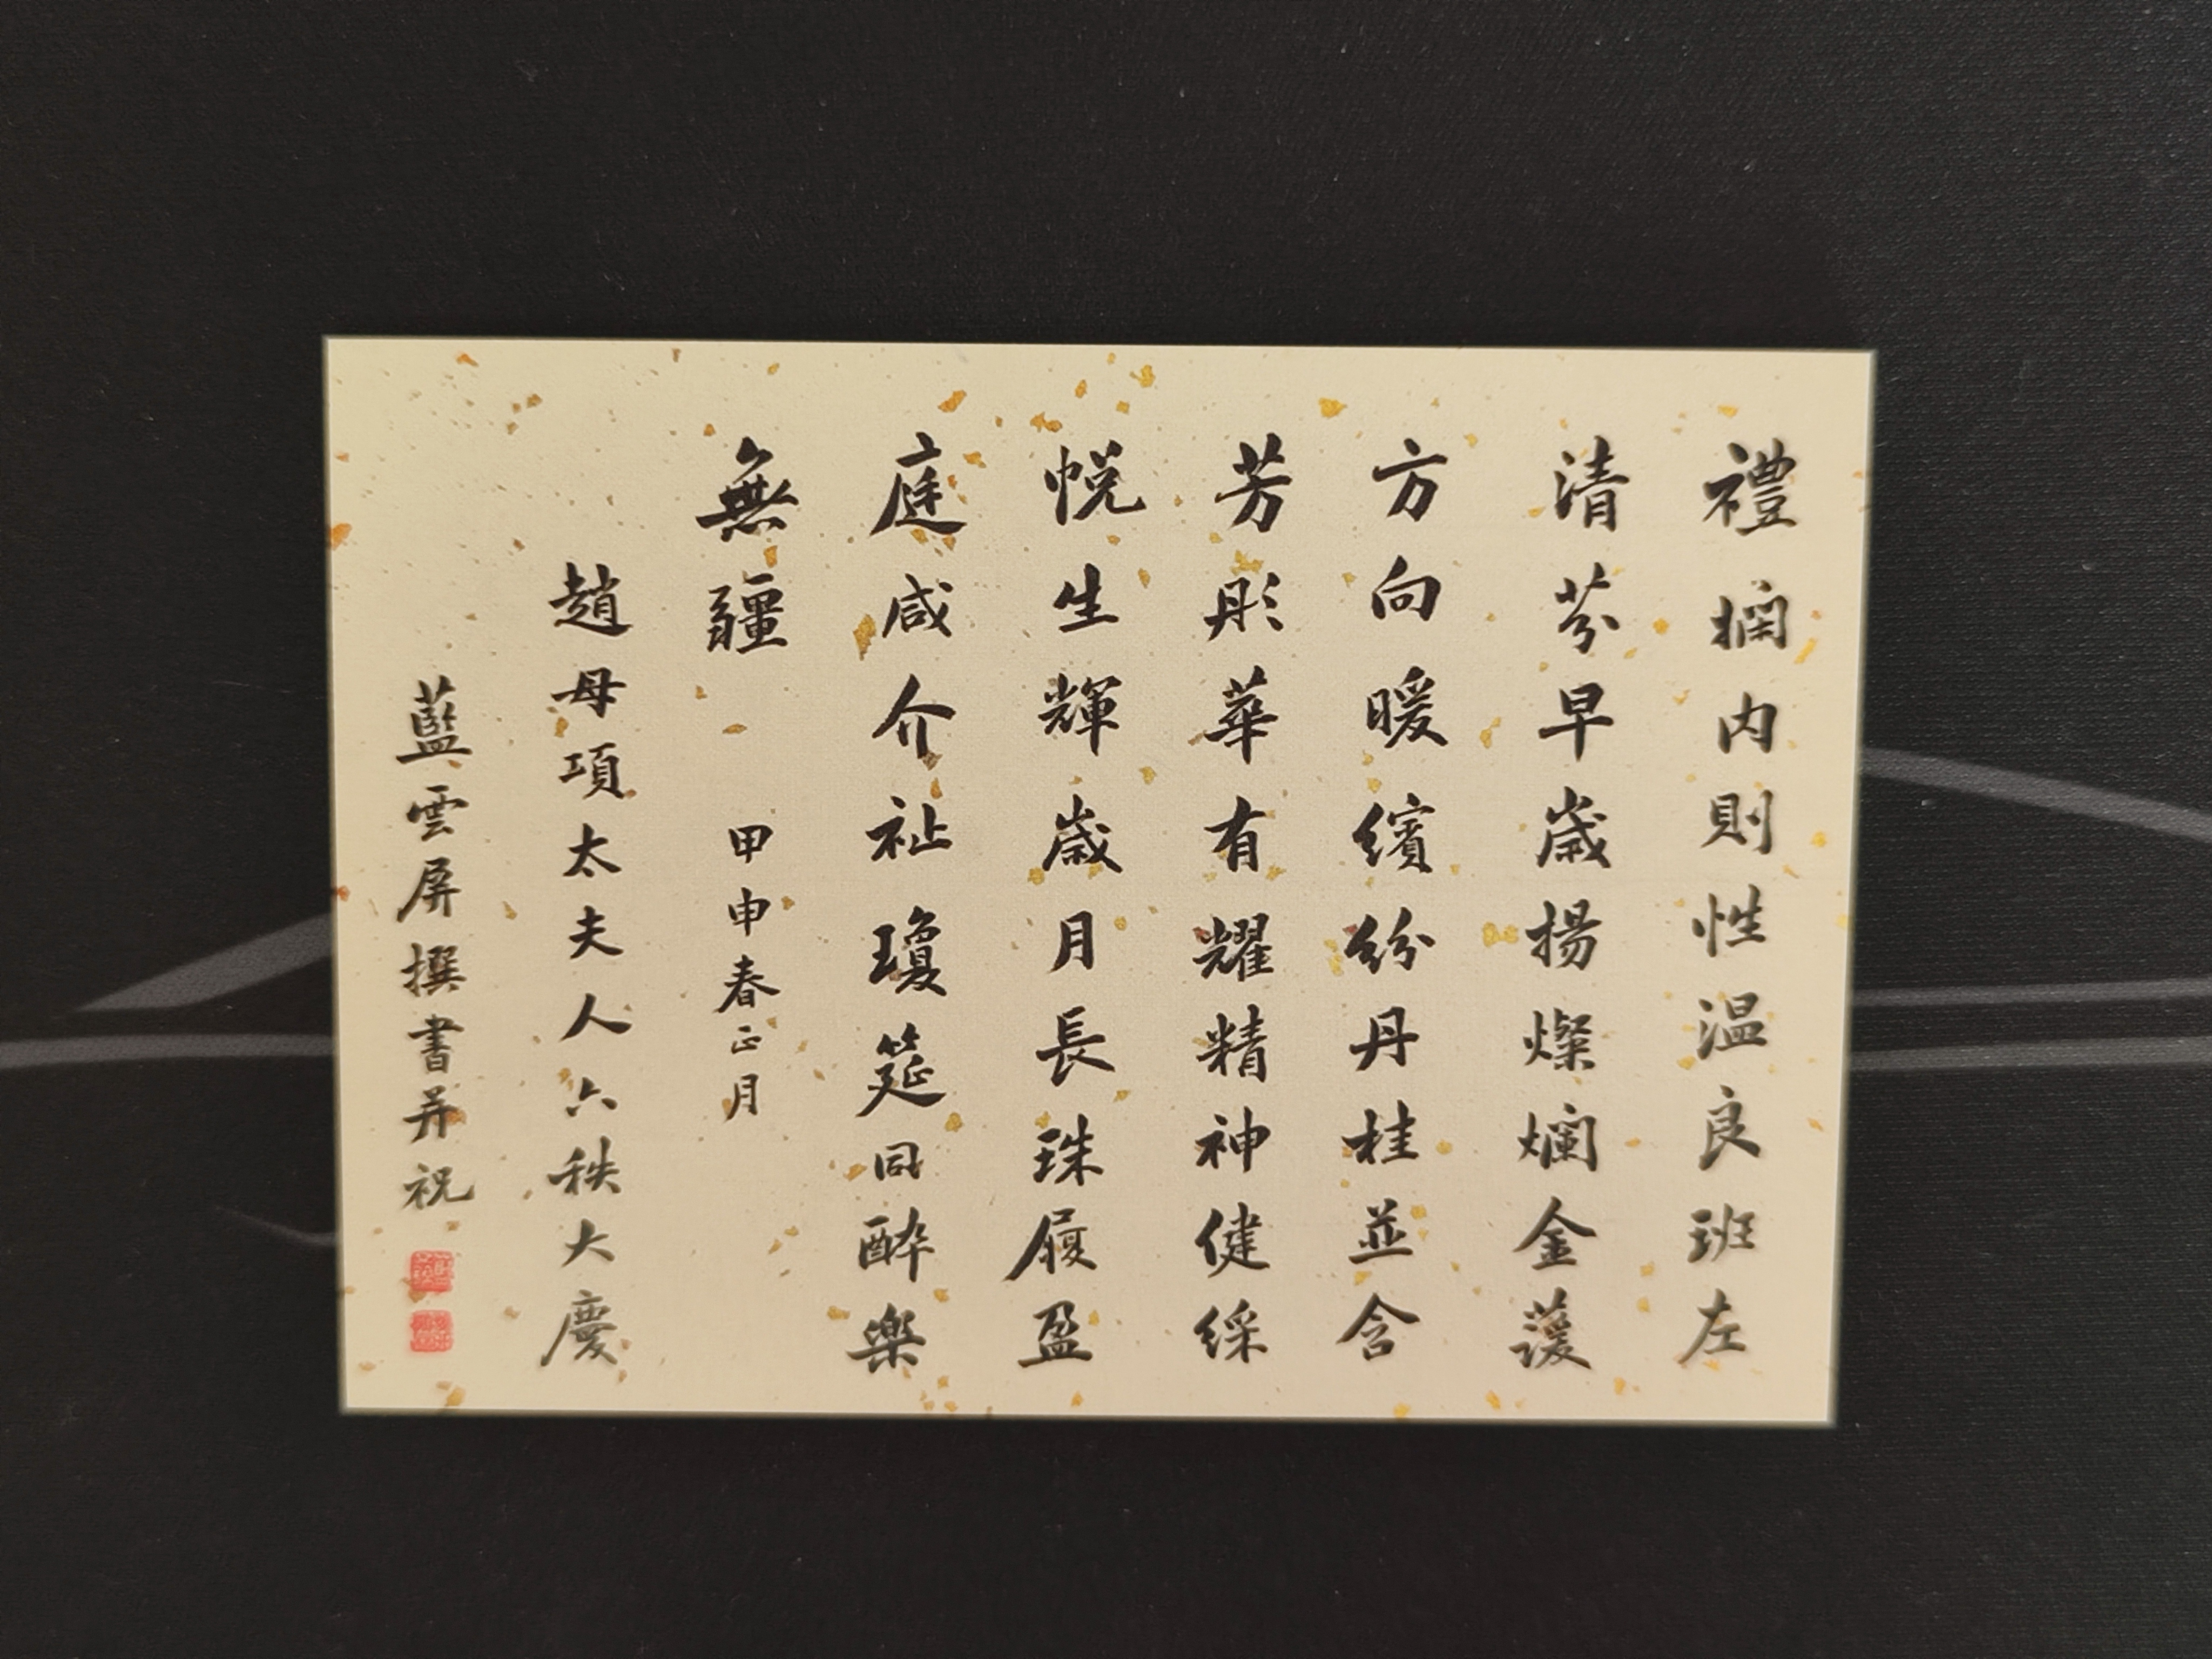 禮内則性温良班左
清芬早歲揚燦爛金蘐
方向暖繽紛丹桂並含
芳彤華有耀精神健綵
帨生輝歲月長珠履盈
庭咸介祉瓊筵同醉樂
無疆 甲申春正月
趙母項太夫人六秩大慶
藍雲屏撰書并祝